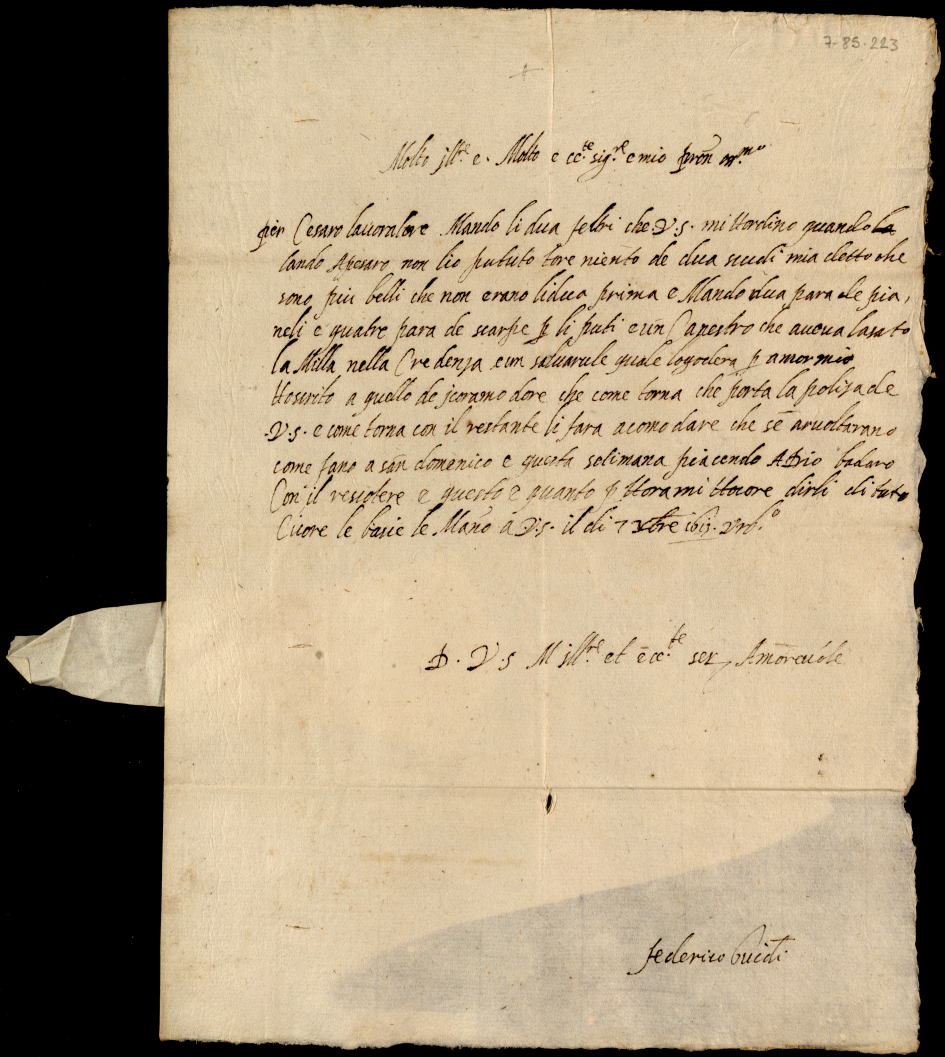 7-85-223
Molto jll.re e. Molto e ecc.te sig.re e mio pron oss.mo
per Cesaro lauoratore Mando li dua feltri che V.S. mi Hordino quando la
Mando Apesaro non lio pututo tore niento de dua scudi mia detto che
sono piu belli che non erano lidua prima e Mando dua para de pia,
neli e quatre para de scarpe p li puti e un Capestro che aueua lasato
la Milla nella Credenza e un quale logodera p amor mio
Hoscrito a quello de che come torna che porta la poliza de
V.S. e come torna con il restante li fara acomodare che se
come fano a san domenico e questa setimana piacendo ADio
Con il rescotere e questo e quanto p Hora mi dirli di tuto
Cuore le basie le Mano a V.S. il di 7 Xbre Vrb.o
D. V.S Molto jll.re et ecc.te ser, Amoreuole
federico Guidi